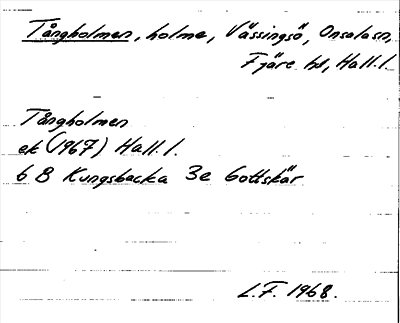 Tångholmen, holme, Vässingsö, Onsalasn,
Fjäre hd, Hall. l.
Tångholmen
ek (1967) Hall. l.
6 B Kungsbacka 3e Gottskär
L.F. 1968.